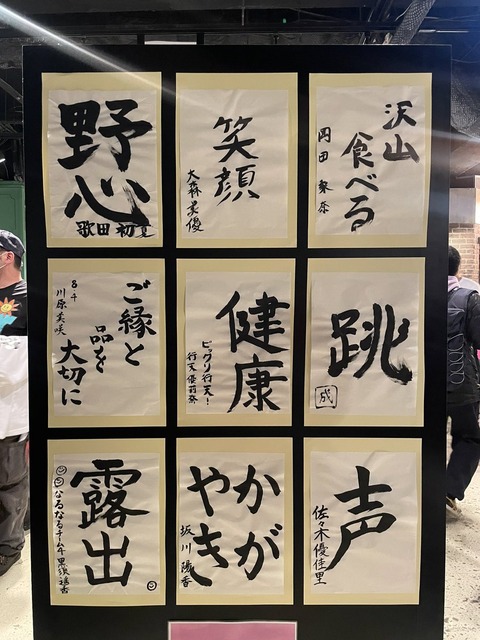 野心
歌田初夏
笑顔
大森美優
沢山
食べる
岡田 梨奈
ご縁と
品を
大切に
84
川原美咲
健康
ビックリ行天!
行天優莉奈
跳
成
露出
なるなるチーム4 黒須遥香
かが
やき
坂川陽香
声
佐々木優佳里